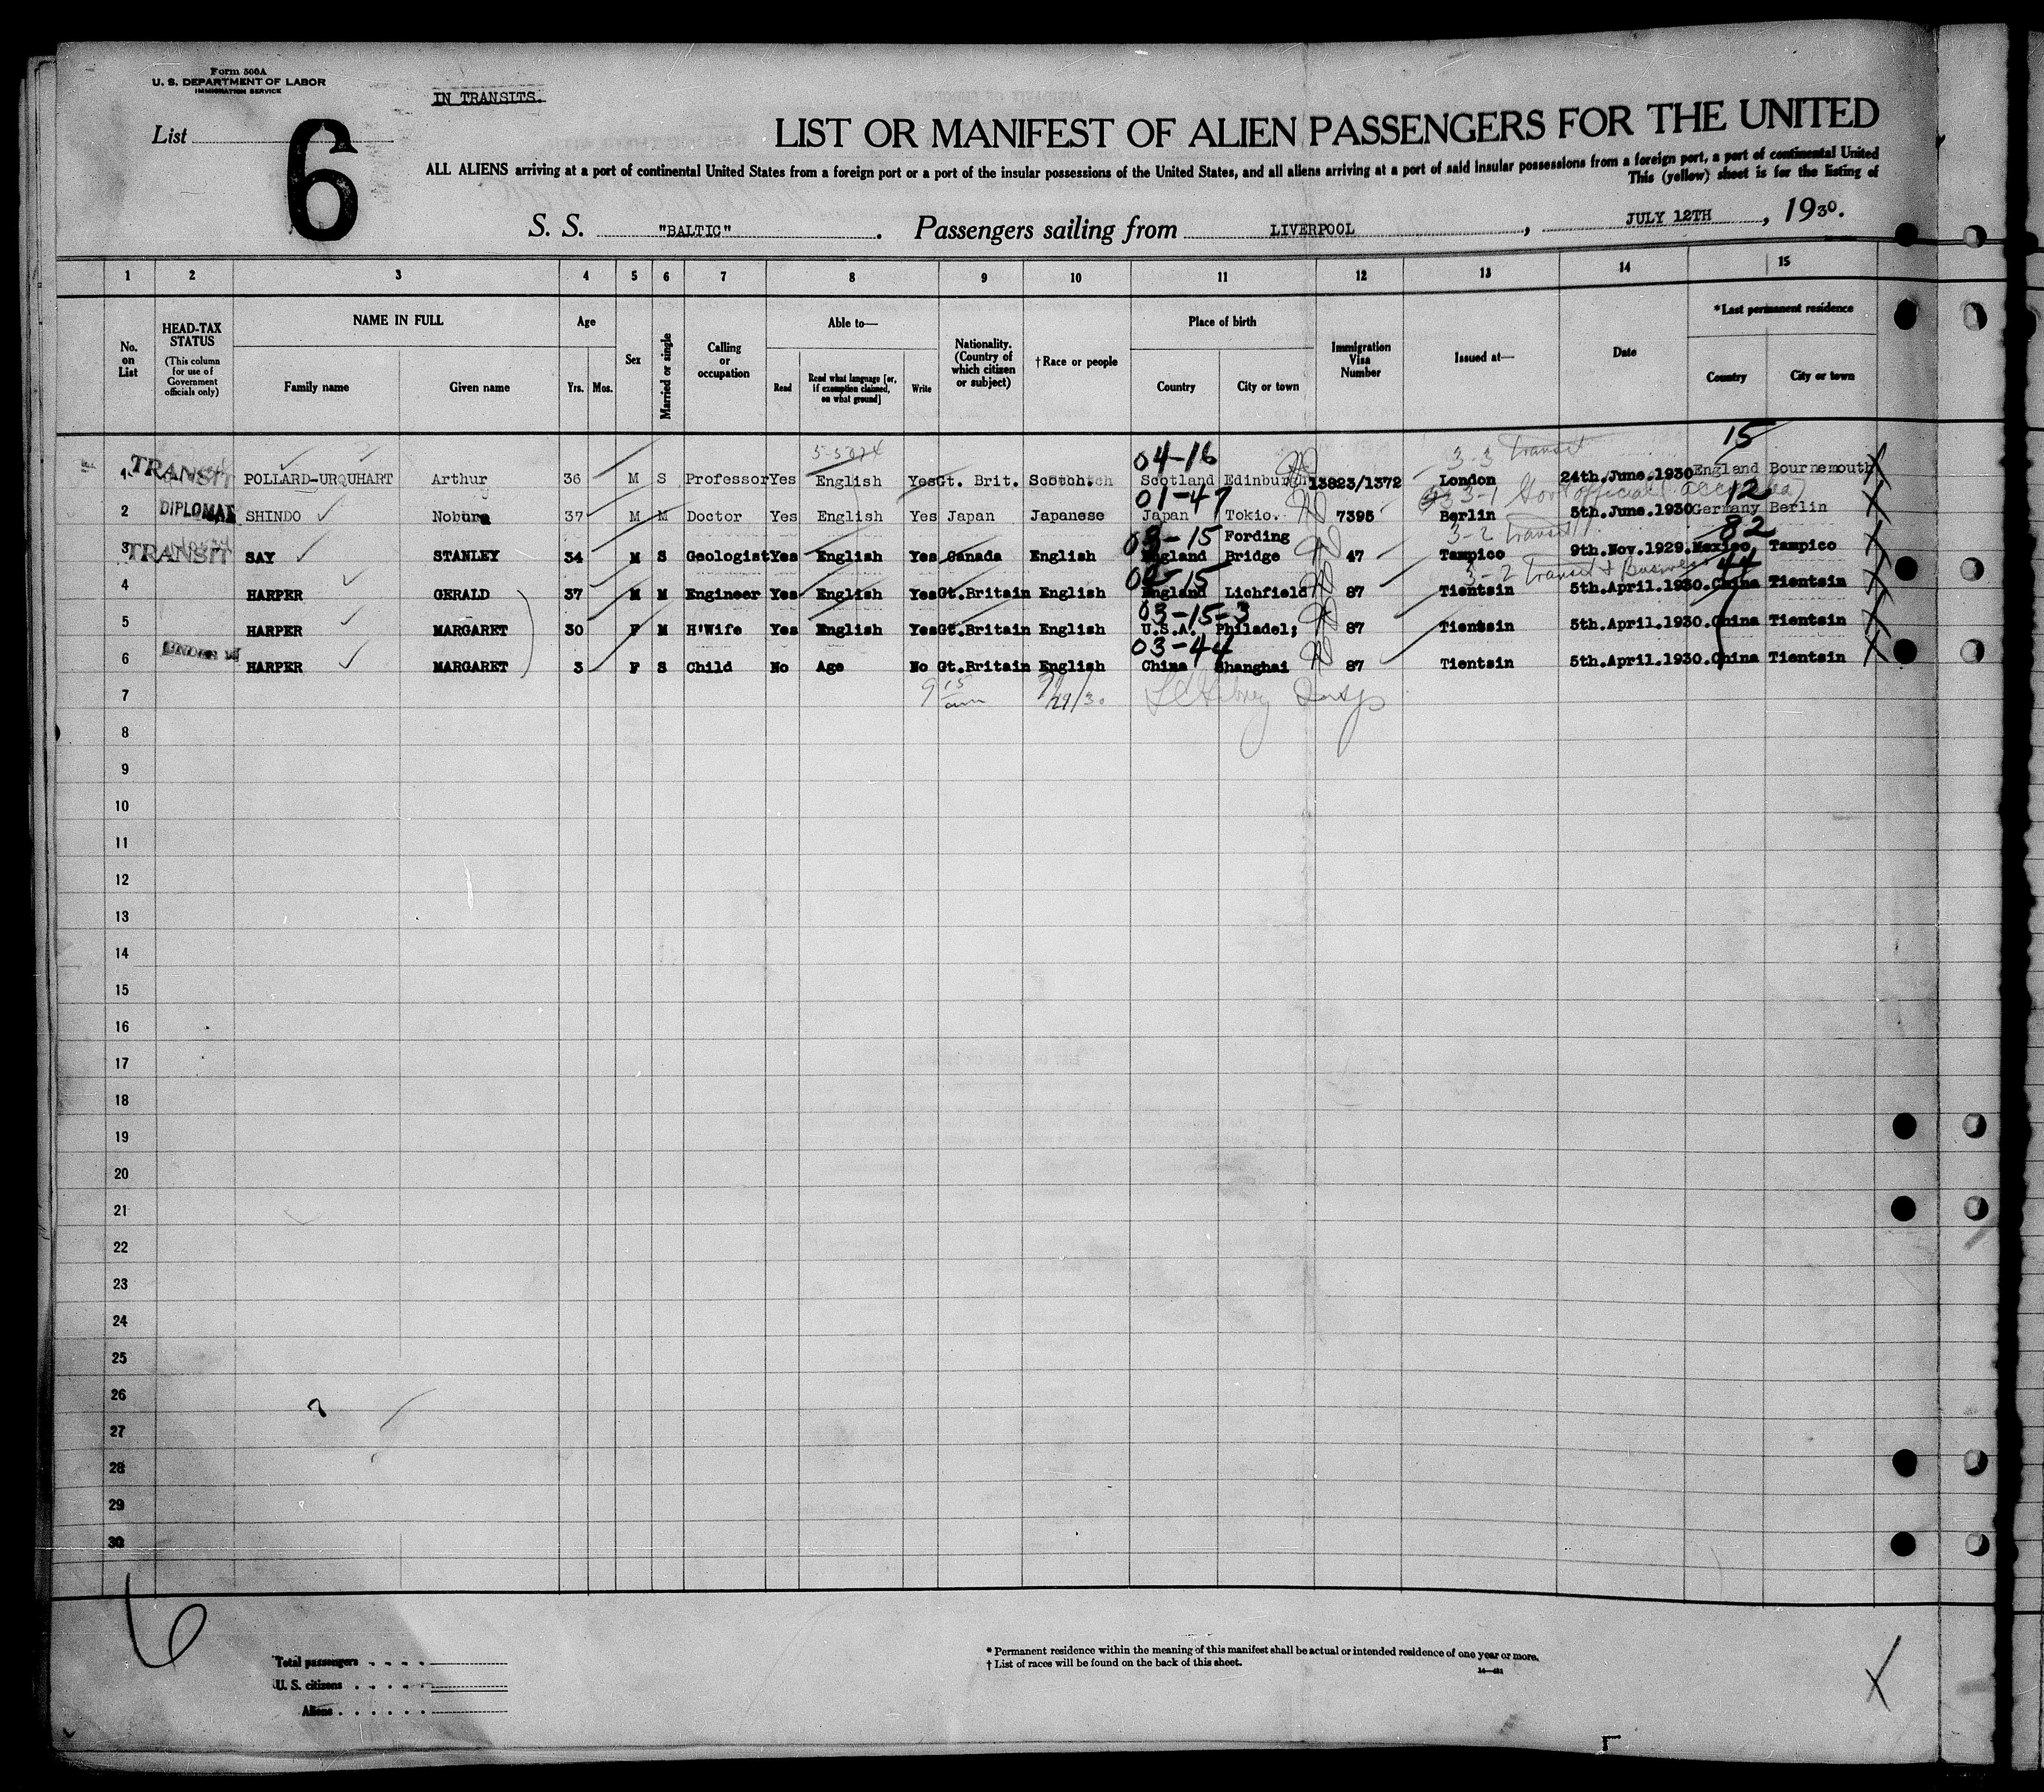 Form 500A
U. S. DEPARTMENT OF LABOR
IMMIGRATION SERVICE
IN TRANSITS.
List 6
LIST OR MANIFEST OF ALIEN PASSENGERS FOR THE UNITED
ALL ALIENS arriving at a port of continental United States from a foreign port or a port of the insular possessions of the United States, and all aliens arriving at a port of said insular possessions from a foreign port, a port of continental United
This (yellow) sheet is for the listing of
S. S. "BALTIC". Passengers sailing from LIVERPOOL, JULY 12TH, 1930.
1 2 3 4 5 6 7 8 9 10 11 12 13 14 15
No. on List
HEAD-TAX STATUS (This column for use of Government officials only)
NAME IN FULL
Family name Given name
Age
Yrs. Mos.
Sex
Married or single
Calling or occupation
Able to—
Read Read what language [or, if exemption claimed, on what ground] Write
Nationality. (Country of which citizen or subject)
†Race or people
Place of birth
Country City or town
Immigration Visa Number
Issued at—
Date
*Last permanent residence
Country City or town
04-16 3-3 Transit 15
1 TRANSIT POLLARD-URQUHART Arthur 36 M S Professor Yes English Yes Gt. Brit. Scotch Scotland Edinburgh 13823/1372 London 24th.June.1930 England Bournemouth
01-47 3-1 Gov't official 12
2 DIPLOMAT SHINDO Nobura 37 M M Doctor Yes English Yes Japan Japanese Japan Tokio. 7395 Berlin 5th.June.1930 Germany Berlin
03-15 3-2 Transit 82
3 TRANSIT SAY STANLEY 34 M S Geologist Yes English Yes Canada English England Fording Bridge 47 Tampico 9th.Nov.1929. Mexico Tampico
04-15 3-2 Transit & Business 44
4 HARPER GERALD 37 M M Engineer Yes English Yes Gt.Britain English England Lichfield 87 Tientsin 5th.April.1930. China Tientsin
03-15-3
5 HARPER MARGARET 30 F M H'Wife Yes English Yes Gt.Britain English U.S.A. Philadel; 87 Tientsin 5th.April.1930. China Tientsin
03-44
6 UNDER 16 HARPER MARGARET 3 F S Child No Age No Gt.Britain English China Shanghai 87 Tientsin 5th.April.1930. China Tientsin
7
8
9
10
11
12
13
14
15
16
17
18
19
20
21
22
23
24
25
26
27
28
29
30
6
Total passengers . . . .
U. S. citizens . . . . .
Aliens . . . . . .
* Permanent residence within the meaning of this manifest shall be actual or intended residence of one year or more.
† List of races will be found on the back of this sheet.